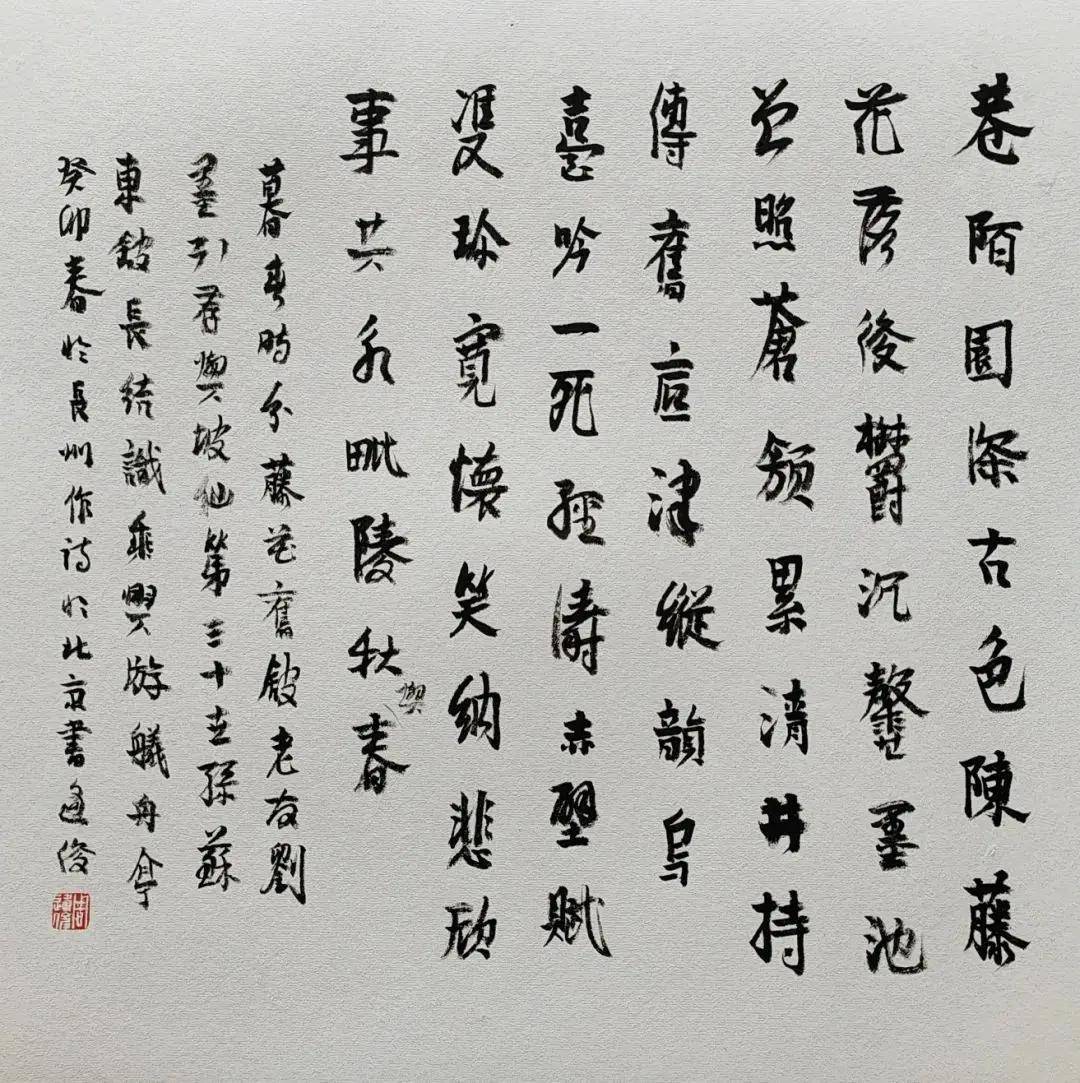 巷陌園深古色陳藤
花落後鬱沉馨墨池
曾照蒼顏累清井持
傳舊津縱韻烏
臺吟一死經濤赤壁賦
雙珍寬懷笑納悲欣
事共永毗陵秋與春
暮春時分藤花舊館老友劉
墨引君與坡仙第三十世孫蘇
東館長結識乘興游艤舟亭
癸卯春於長州作詩於北京書俊